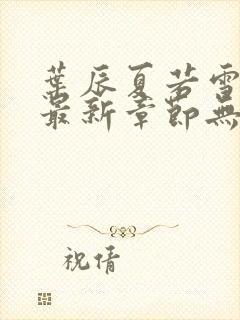 葉辰夏若雪
最新章節無
祝倩